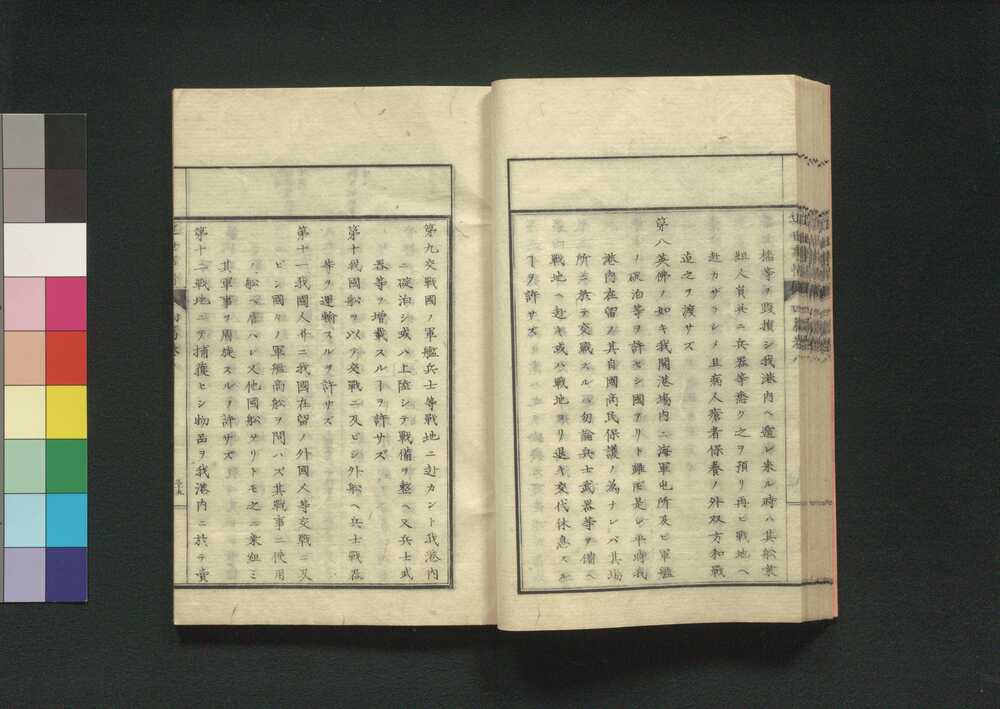 橋等ヲ毀損シ我港内ヘ遁レ来ル時ハ其舩乗
組人員共ニ兵器等悉ク之ヲ預リ再ヒ戦地ヘ
赴カザラシメ且病人瘡者保養ノ外双方和戦
迠之ヲ渡サズ
第八英佛ノ如キ我開港場内ニ海軍屯所及ヒ軍艦
ノ碇泊等ヲ許セシ國アリト雖𪜈是レ平時我
港内在留ノ其自國商民保護ノ為ナレバ其場
所ニ於テ交戦スルハ勿論兵士武器等ヲ備ヘ
戦地ヘ赴キ或ハ戦地ヨリ退キ交代休息スル
ヿヲ許サズ
第九交戦國ノ軍艦兵士等戦地ニ赴カント我港内
ニ碇泊シ或ハ上陸シテ戦備ヲ整ヘ又兵士武
器等ヲ増載スルヿヲ許サズ
第十我國舩ヲ以テ交戦ニ及ビシ外舩ヘ兵士戦器
等ヲ運輸スルヲ許サズ
第十一我國人并ニ我國在留ノ外國人等交戦ニ及
ビシ國々ノ軍艦商舩ヲ問ハズ其戦事ニ使用
ノ舩ヘ雇ハレ又他國舩ヲリトモ之ニ乗組ミ
其軍事ヲ周旋スルヲ許サズ
第十二戦地ニテ捕獲セシ物品ヲ我港内ニ於テ賣